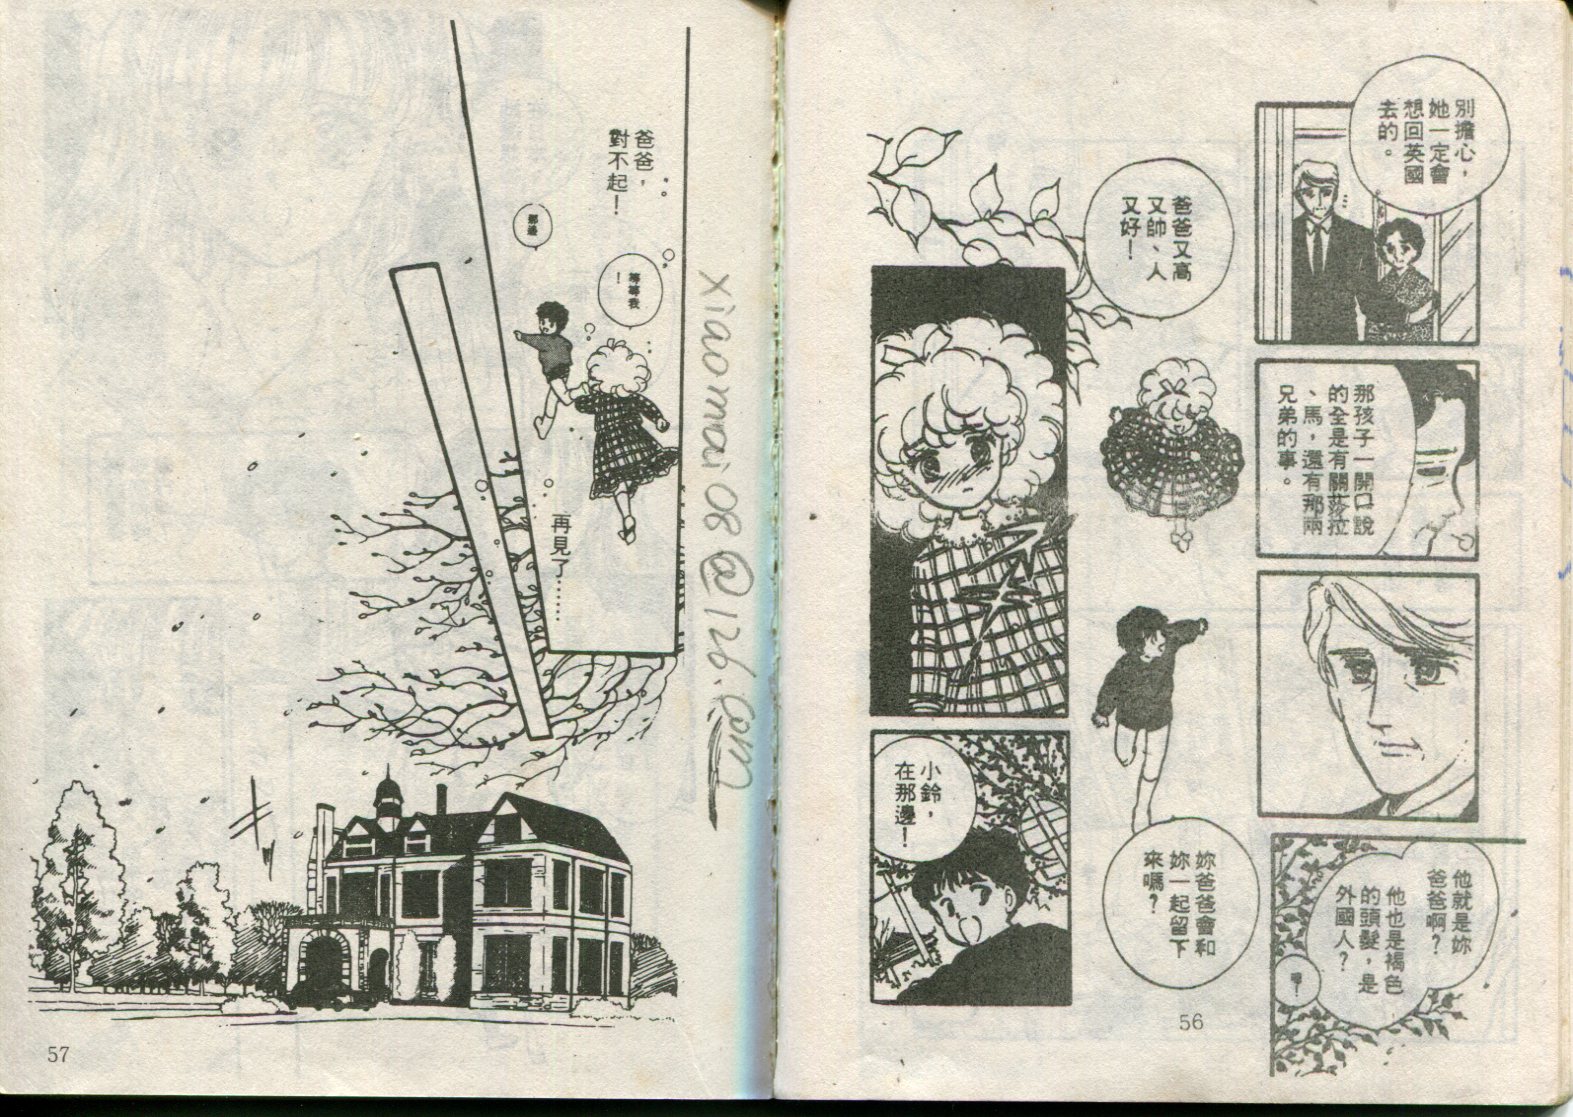 別擔心，
她一定會
想回英國
去的。
那孩子一開口說
的全是有關莎拉
、馬，還有那兩
兄弟的事。
他就是妳
爸爸啊？
他也是褐色
的頭髮，是
外國人？
嗯！
爸爸又高
又帥、人
又好！
妳爸爸會和
妳一起留下
來嗎？
小鈴，
在那邊！
56
爸爸，
對不起！
等等我
！
那邊
再見了………
57
xiaomai08@126.com